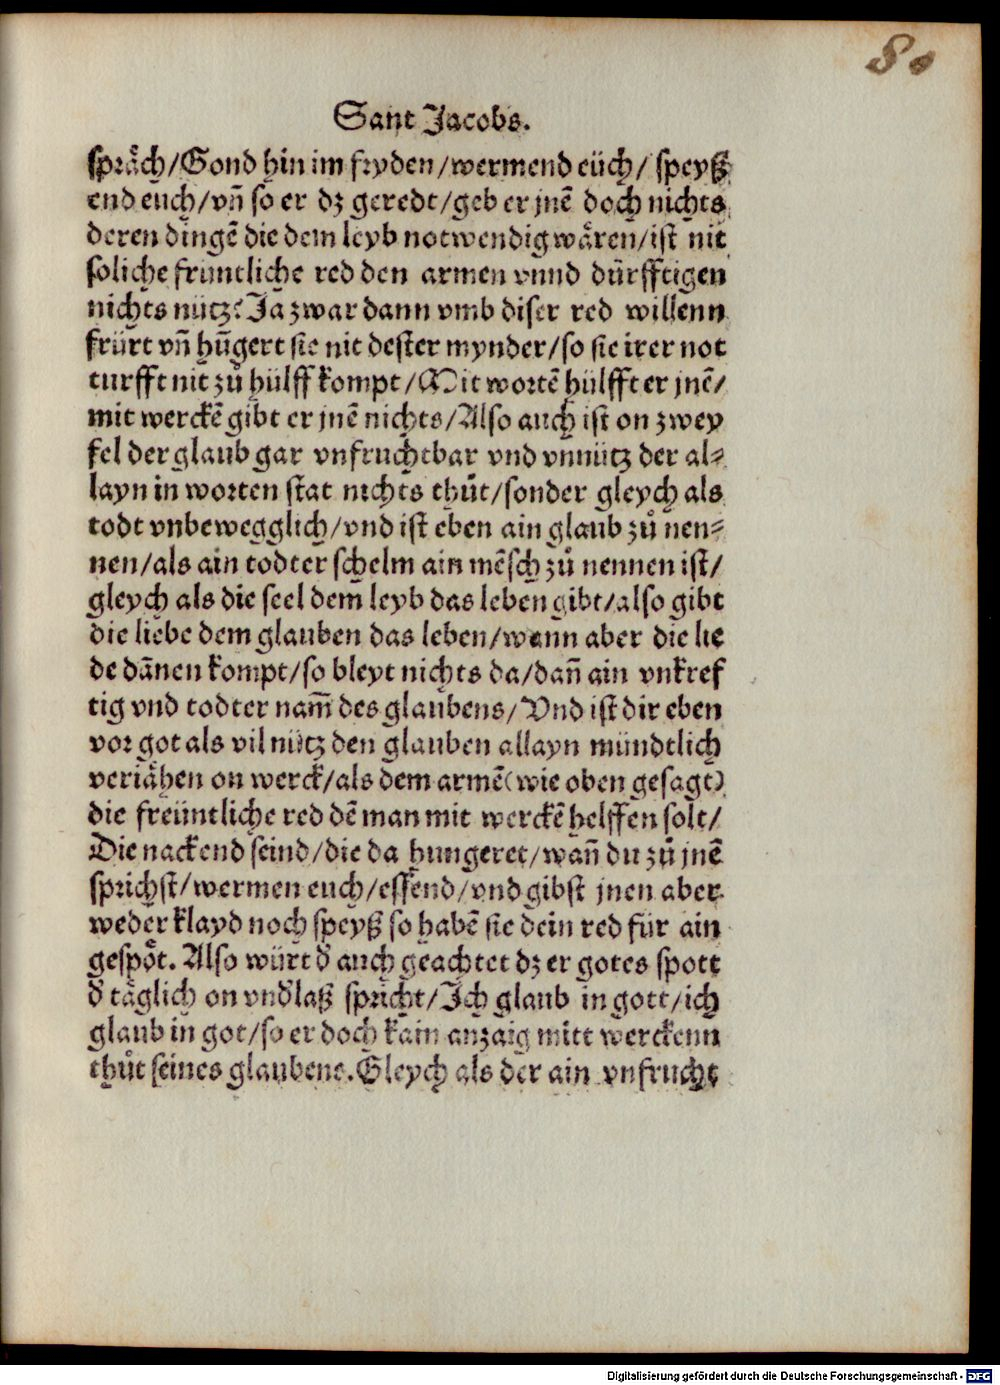 80
Sant Jacobs.
spräch/Gond hin im fryden/wermend eüch/ speyß
end euch/vñ so er dz geredt/geb er jnē doch nichts
deren dingē die dem leyb notwendig wären/ist nit
soliche fruntliche red den armen vnnd dürfftigen
nichts nütz? Ja zwar dann vmb diser red willenn
frürt vñ hūgert sie nit dester mynder/so sie irer not
turfft nit zů hülff kompt/Mit wortē hülfft er jnē/
mit werckē gibt er jnē nichts/Also auch ist on zwey
fel der glaub gar vnfruchtbar vnd vnnütz der al⸗
layn in worten stat nichts thůt/sonder gleych als
todt vnbewegglich/vnd ist eben ain glaub zů nen⸗
nen/als ain todter schelm ain mēsch zů nennen ist/
gleych als die seel dem leyb das leben gibt/also gibt
die liebe dem glauben das leben/wann aber die lie
be dānen kompt/so bleyt nichts da/dañ ain vnkref
tig vnd todter nam̄ des glaubens/Vnd ist dir eben
vor got als vil nütz den glauben allayn mündtlich
veriähen on werck/als dem armē(wie oben gesagt)
die freüntliche red dē man mit werckē helffen solt/
Die nackend seind/die da hungeret/wañ du zů jnē
sprichst/wermen euch/essend/vnd gibst jnen aber
weder klayd noch speyß so habē sie dein red für ain
gespöt. Also würt đ auch geachtet dz er gotes spott
đ täglich on vnđlaß spricht/Ich glaub in gott/ich
glaub in got/so er doch kain anzaig mitt werckenn
thůt seines glaubens. Gleych als der ain vnfrucht
Digitalisierung gefördert durch die Deutsche Forschungsgemeinschaft - DFG